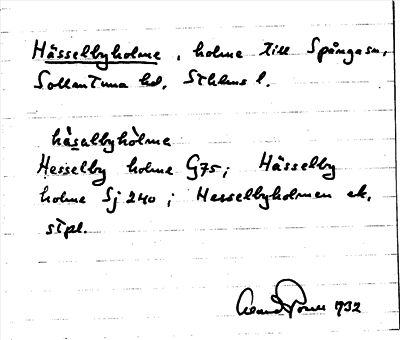 Hässelbyholme, holme till Spångasn,
Sollentuna hd, Sthlms l.
hä̀salbyhòlme
Hesselby holme G75; Hässelby
holme Sj 240; Hesselbyholmen ek.
stpl.
1932